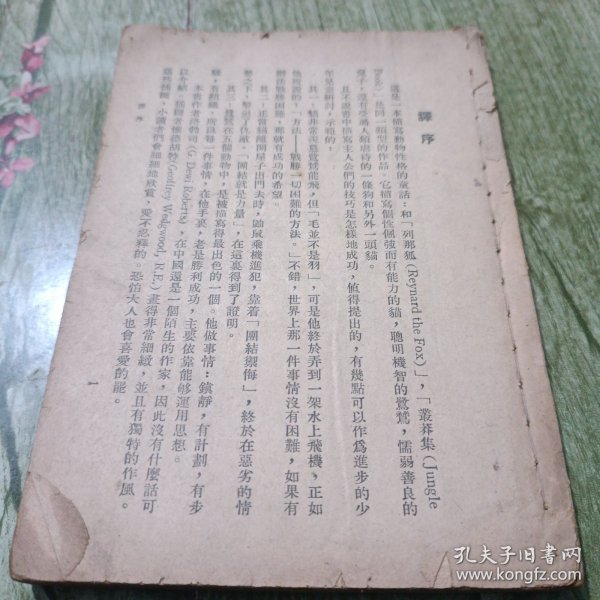 譯序
這是一本描寫動物性格的童話：和「列那狐(Reynard the Fox)」，「叢莽集(Jungle
Book)」是同一類型的作品。它描寫個性倔強而有能力的貓，聰明機智的鷺鷥，懦弱善良的
兔子，還有受過人類虐待的一條狗和另外一頭貓。
且不說書中描寫主人公們的技巧是怎樣地成功，値得提出的，有幾點可以作爲進步的少
年兒童研討，示範的：
其一：貓非常羨慕鷺鷥能飛，但「毛並不是羽」，可是他終於弄到一架水上飛機，正如
他所說的，「方法——戰勝一切困難的方法。」不錯，世界上那一件事情沒有困難，如果有
辦法戰勝困難，那就有成功的希望。
其二：正當貓離開屋子出門去時，鼬鼠乘機進犯，靠着「團結禦侮」，終於在惡劣的情
勢之下，擊退了仇敵。「團結就是力量」，在這裏得到了證明。
其三：鷺鷥在五個動物中，是被描寫得最出色的一個。他做事情：鎮靜，有計劃，有步
驟，有組織，所以每一件事情，在他手裏，老是勝利成功，主要依靠能够運用思想。
本書作者洛勃司(G. Dewi Roberts)，在中國還是一個陌生的作家，因此沒有什麼話可
以介紹。插圖者維德胡特(Geoffrey Wedgwood, R.E.)畫得非常細緻，並且有獨特的作風。
這些插圖，小讀者們會細細地欣賞，愛不忍釋的。恐怕大人也會喜愛的罷。
譯序
1
孔夫子旧书网
www.kongfz.com